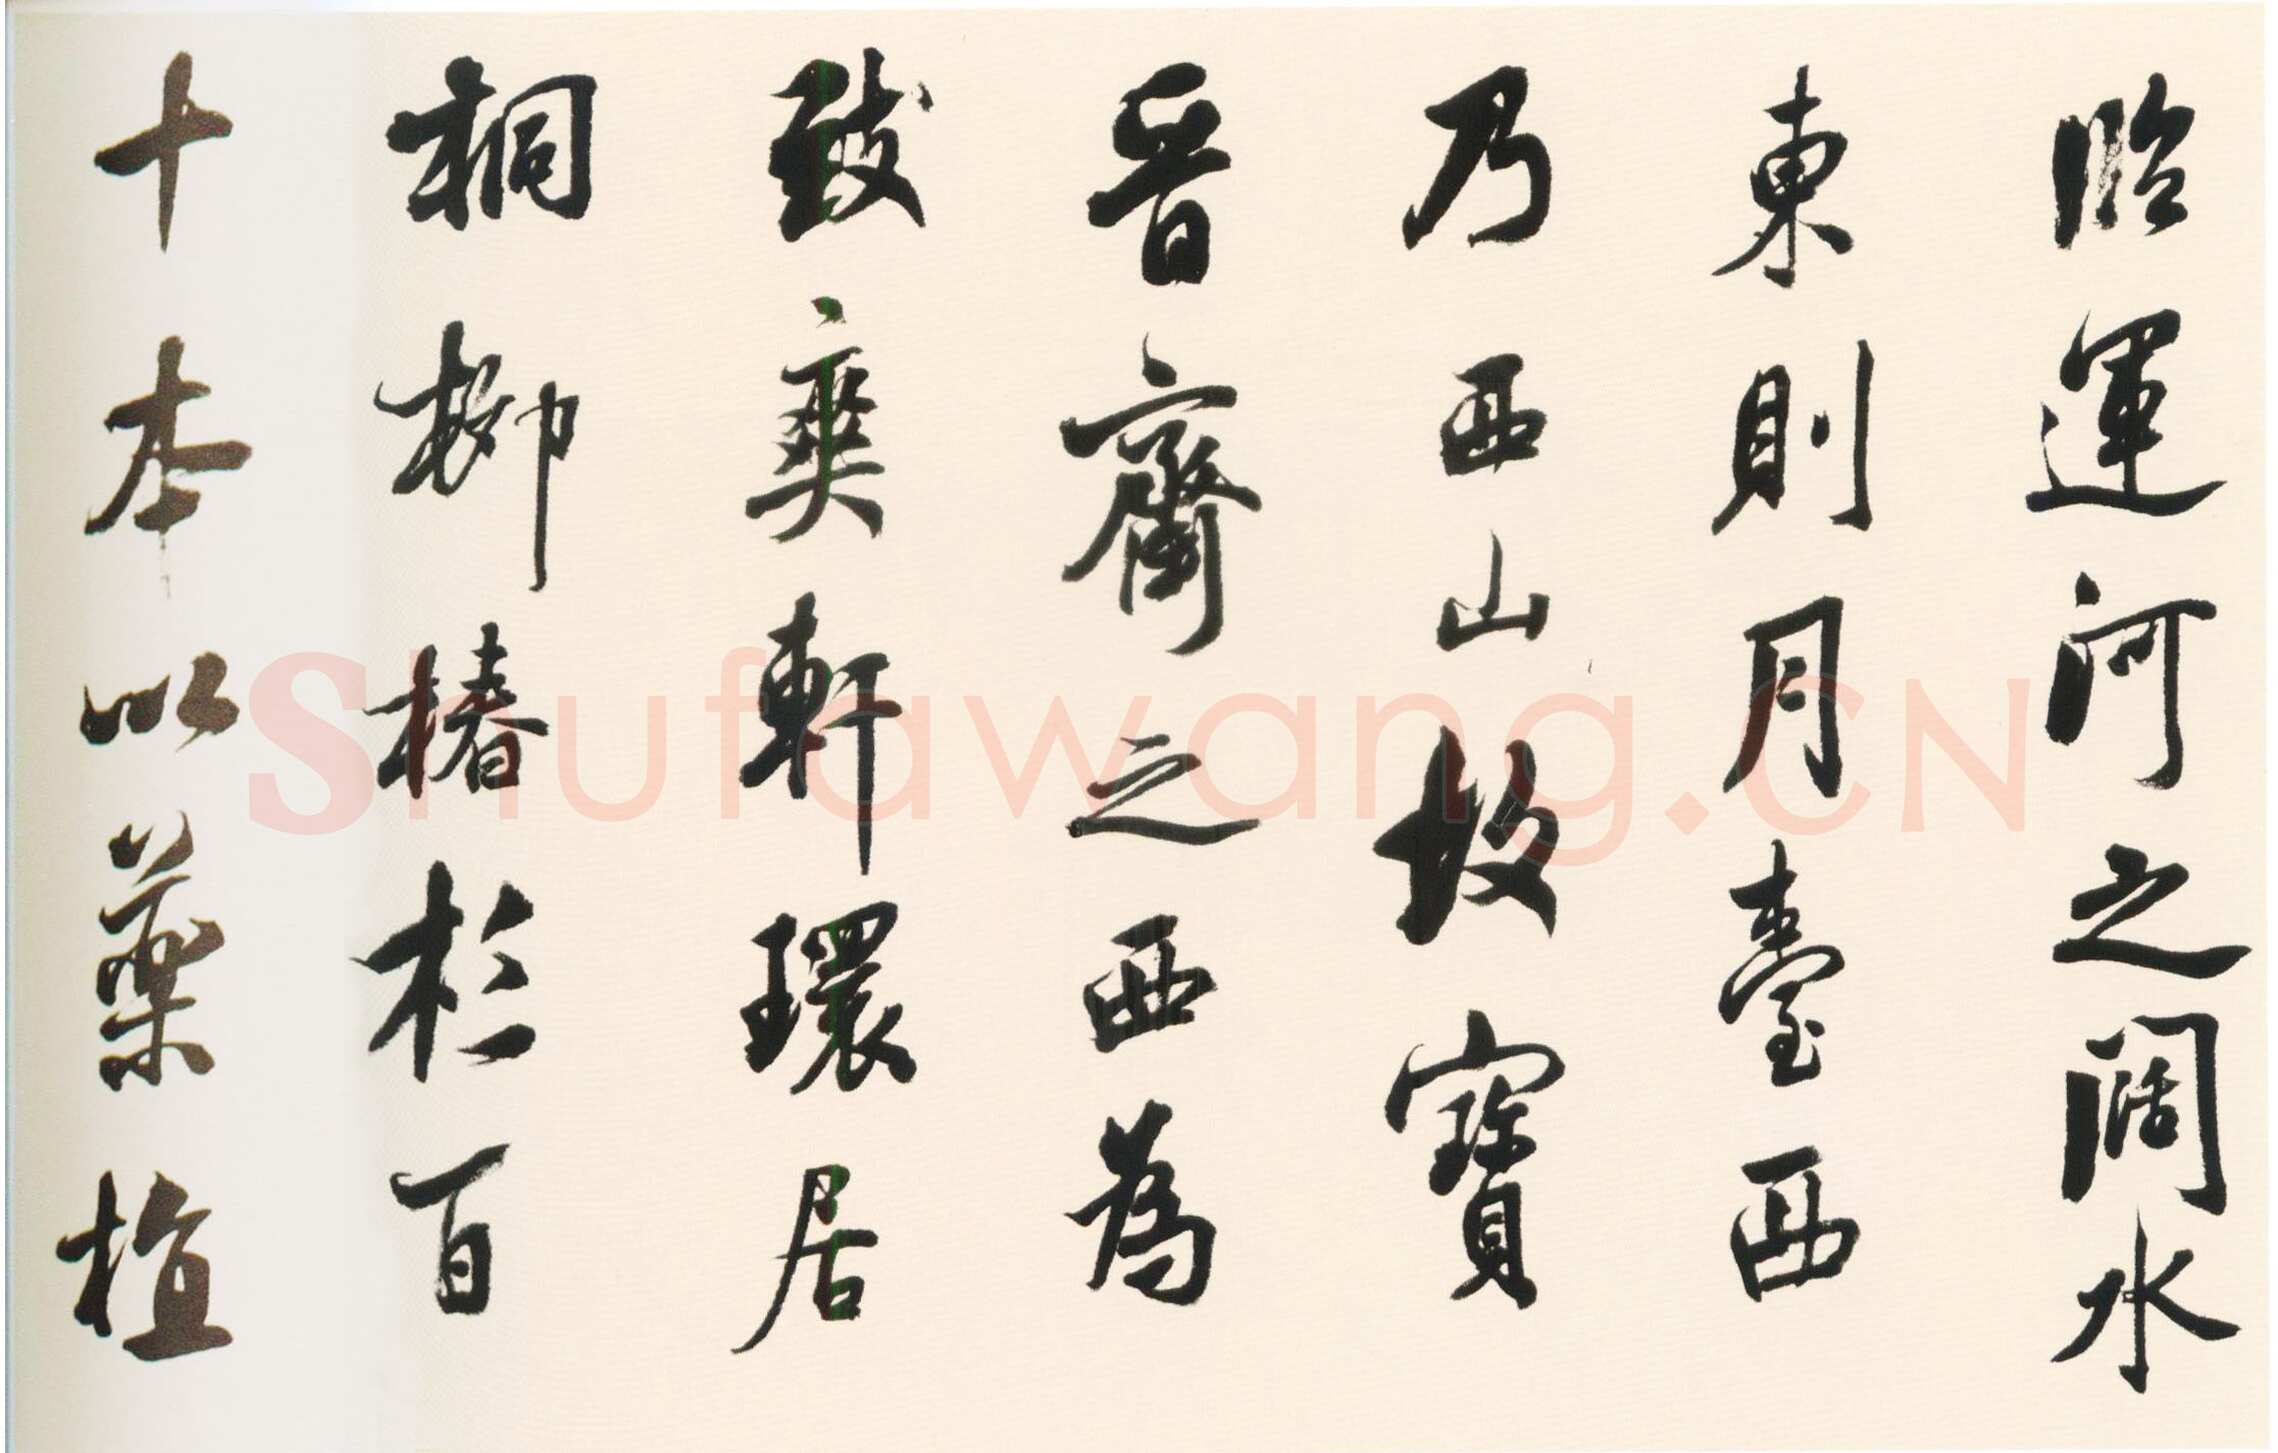 臨運河之闊水
東則月臺西
乃西山故寶
晉齋之西為
致爽軒環居
桐柳椿杉百
十本以藥植
Shufawang.CN